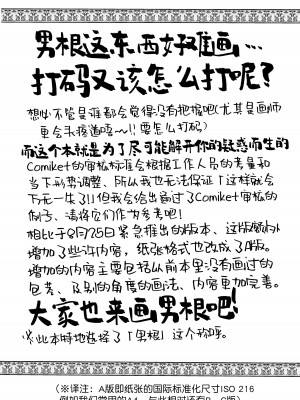 男根这东西好难画…
打码又该怎么打呢?
想必不管是谁都会觉得没有把握吧(尤其是画师
更会
要怎么打码)
而这个本就是为了尽可能解开你的疑惑而生的
Comiket的审核标准会根据工作人员的考量和
当下形势调整、所以我也无法保证「这样就会
万无一失了!!但我会给出通过了Comiket审核的
例子、请将它们作为参考吧!
相比于8月25日紧急推出的版本、这版额外
增加了些许内容,纸张格式也改成了A版。
增加的内容主要包括从前本里没有画过的
包茎、及别的角度的画法、内容更加完善。
大家也来画男根吧!
※此本特地选择了「男根」这个称呼。
(※译注:A版即纸张的国际标准化尺寸ISO 216
例如我们常用的A4,与此相对还有B、C版)